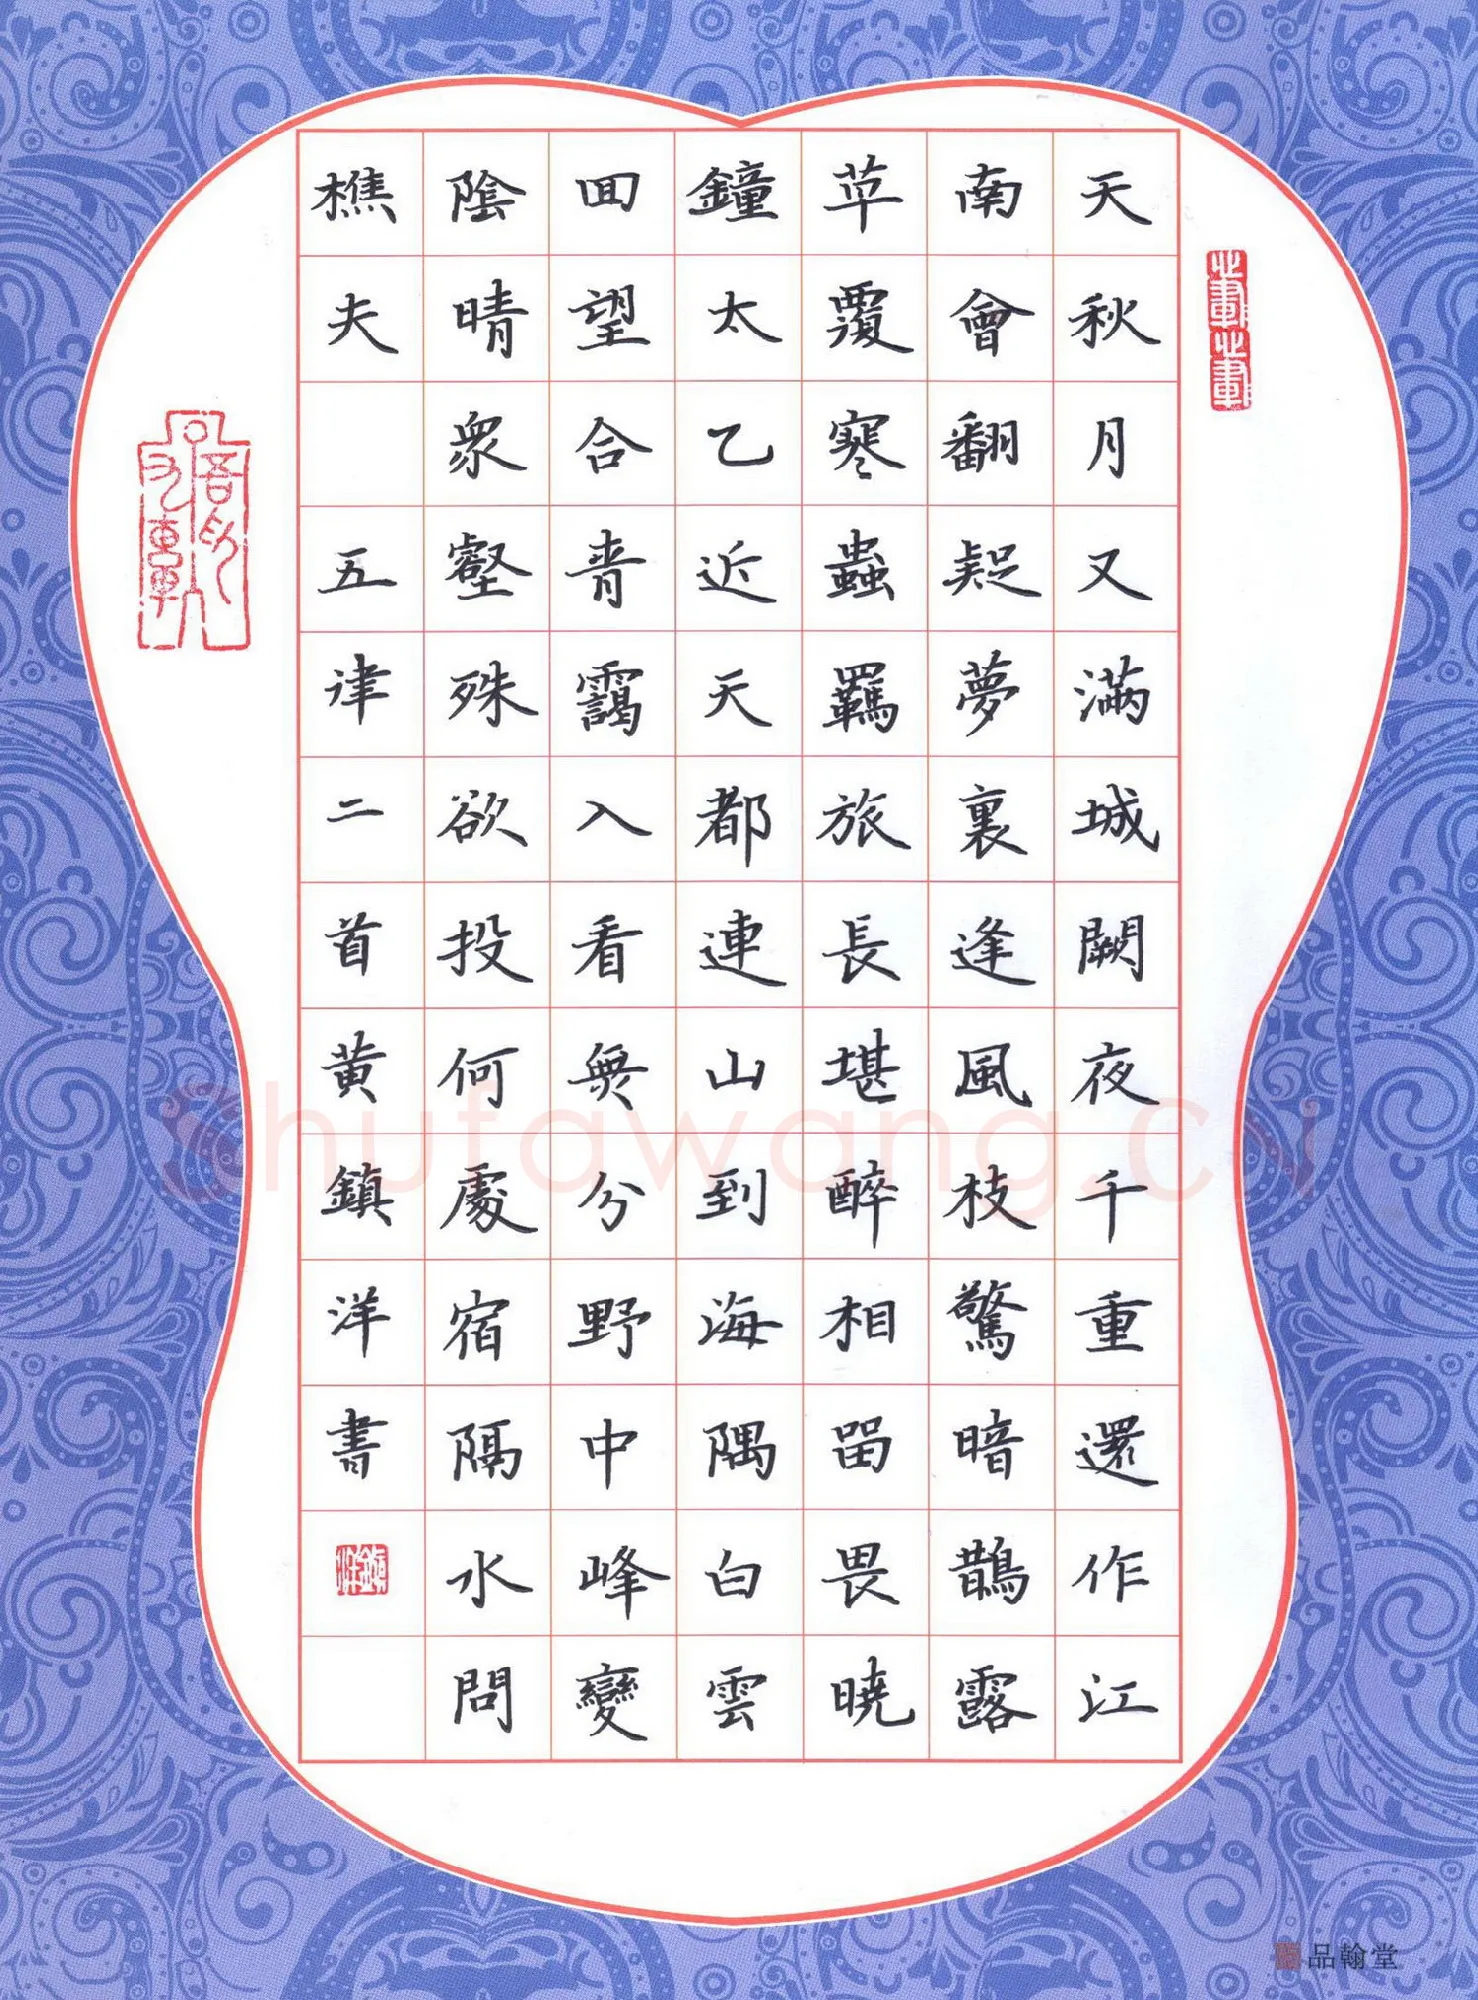 天秋月又滿城闕夜千重還作江
南會翻疑夢裏逢風枝驚暗鵲露
草覆寒蟲羈旅長堪醉相留畏曉
鐘太乙近天都連山到海隅白雲
回望合青靄入看無分野中峰變
陰晴衆壑殊欲投何處宿隔水問
樵夫 五律二首黄鎮洋書
鎮洋
Shufawang.cn
品翰堂